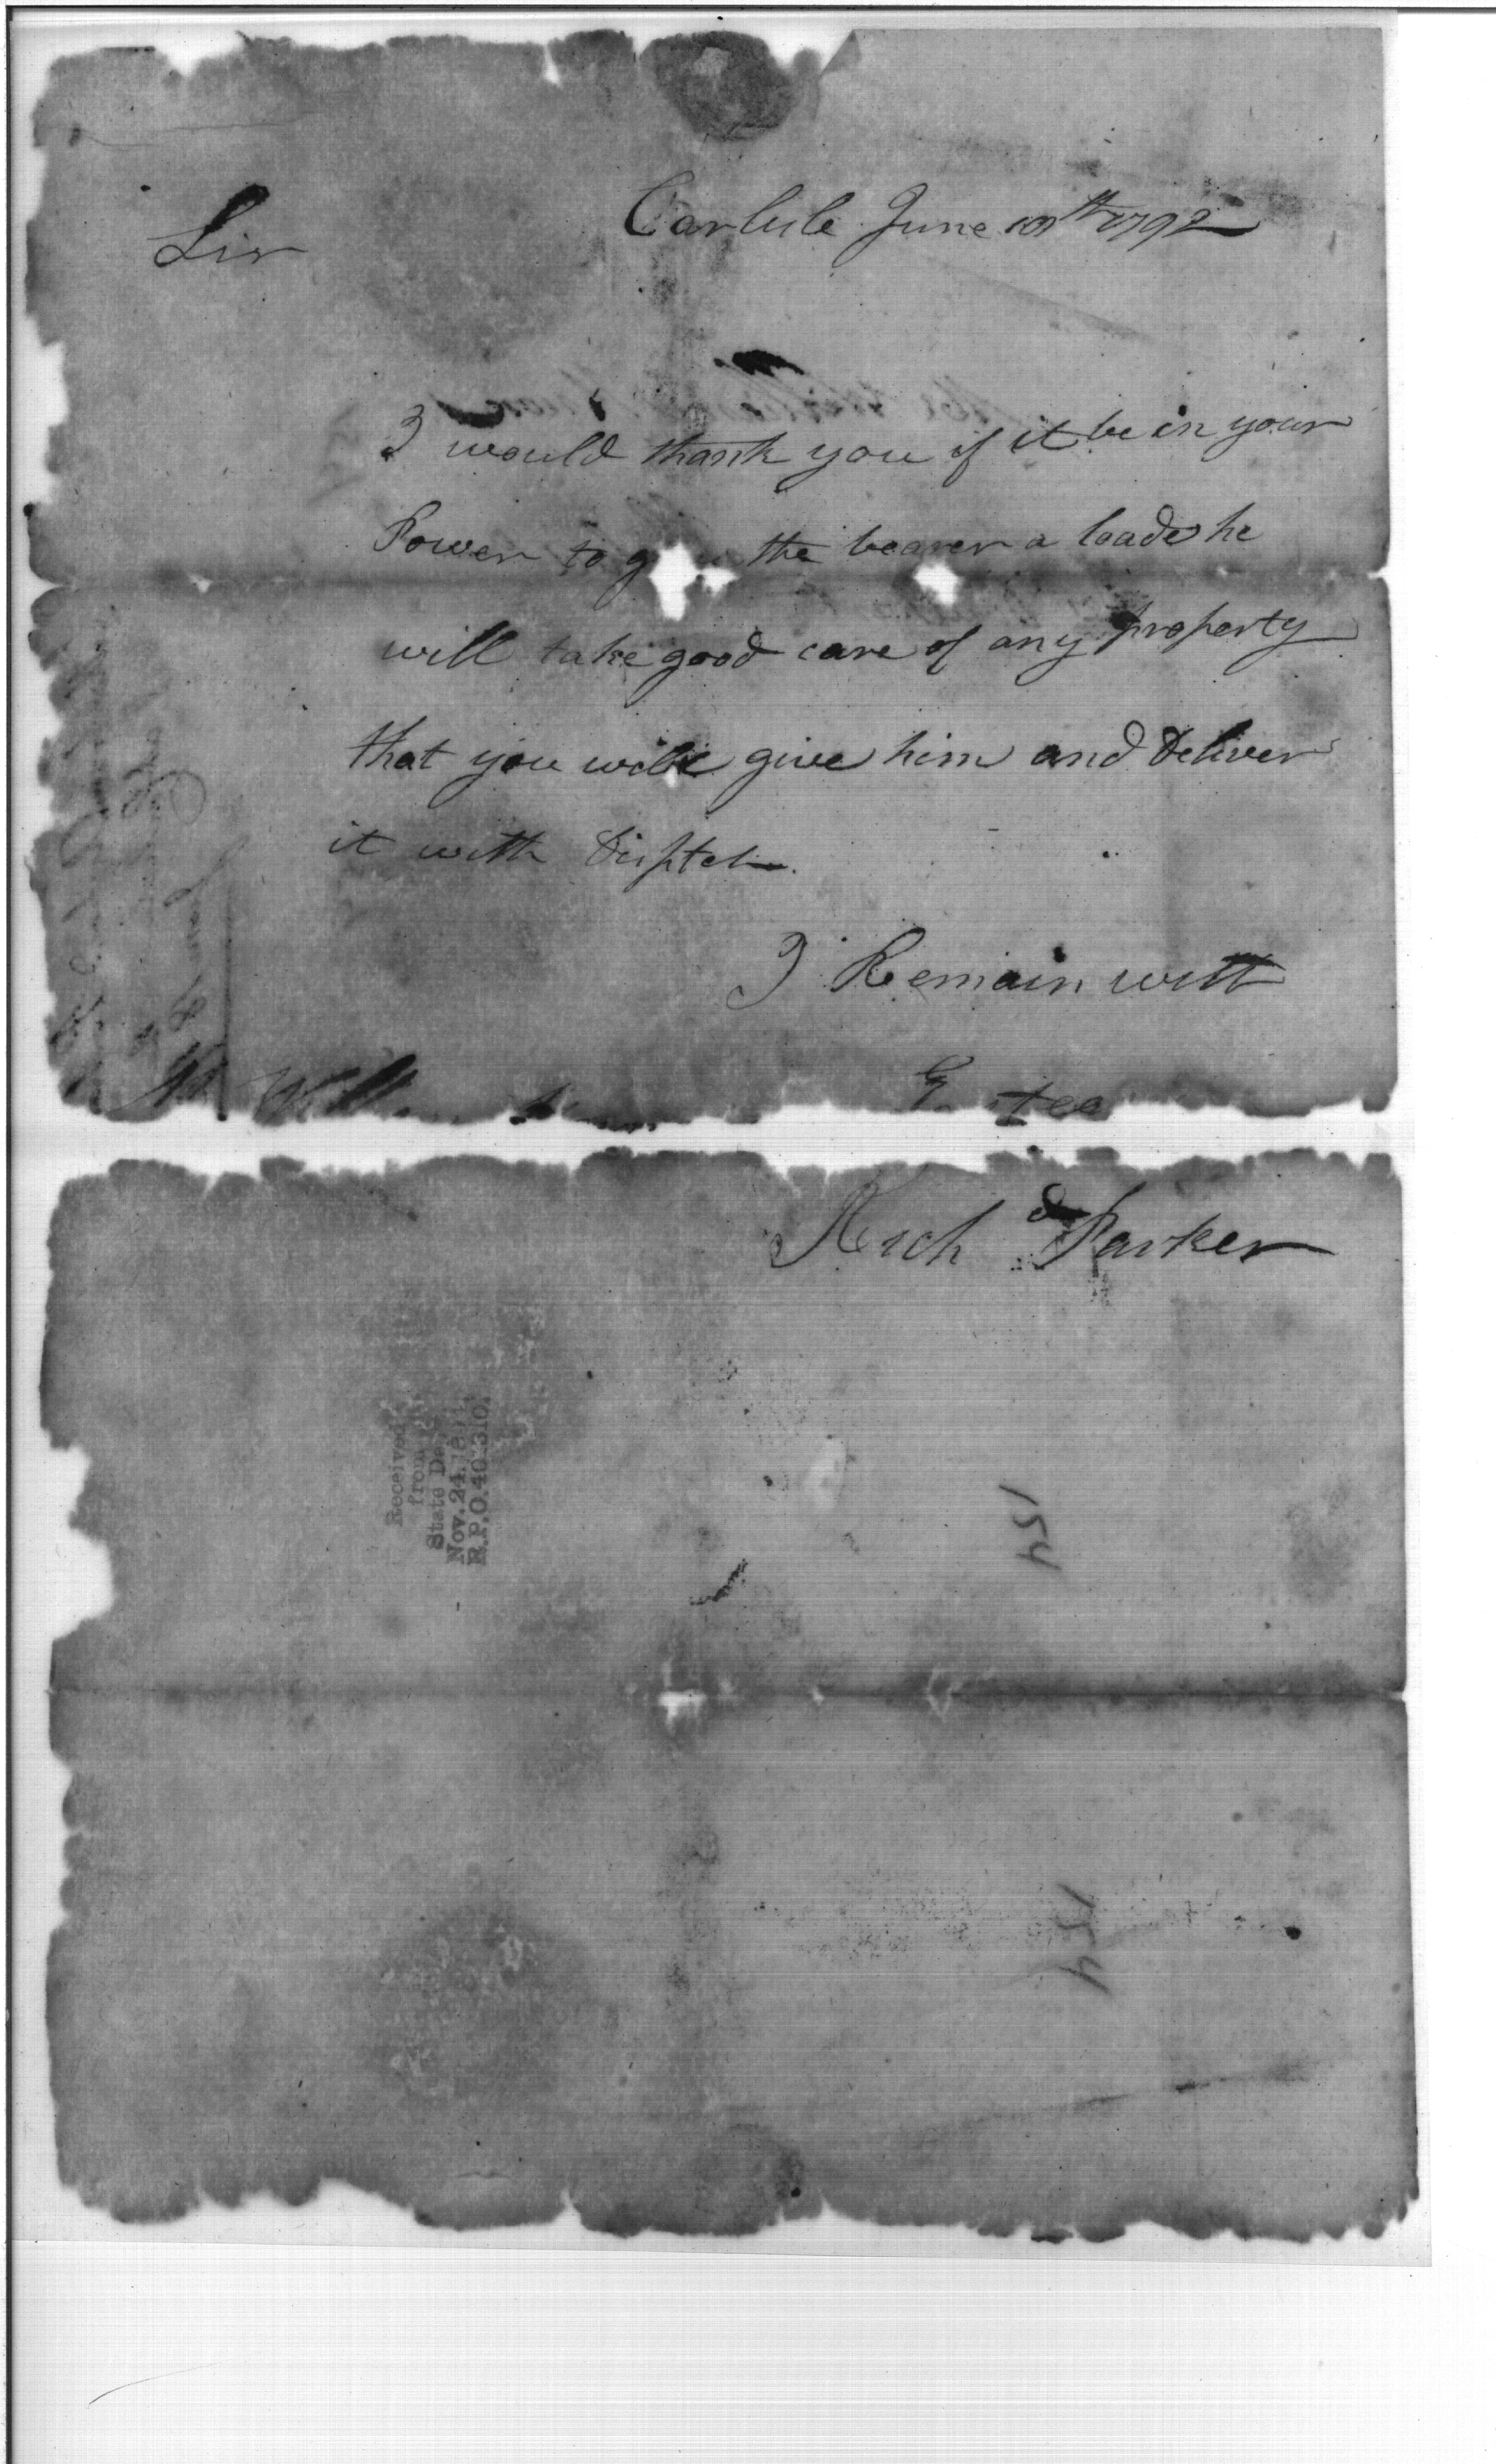 Carlisle June 10th 1792
Sir
I would thank you if it be in your
Power to the bearer a loade he
will take good care of any property
that you will give him and deliver
it with
I Remain with
Mr
Richd Parker
Received
from
State
Nov. 24,
R.P.O. 40310.
154
154